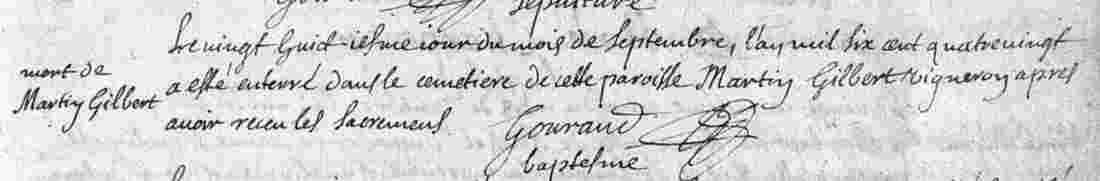 sepulture
Le vingt huict iesme iour du mois de septembre, l'an mil six cent quatrevingt
mort de
Martin Gilbert
a esté enterré dans le cemetiere de cette paroisse Martin Gilbert vigneron apres
auoir receu les sacremens
Gouraud
baptesme